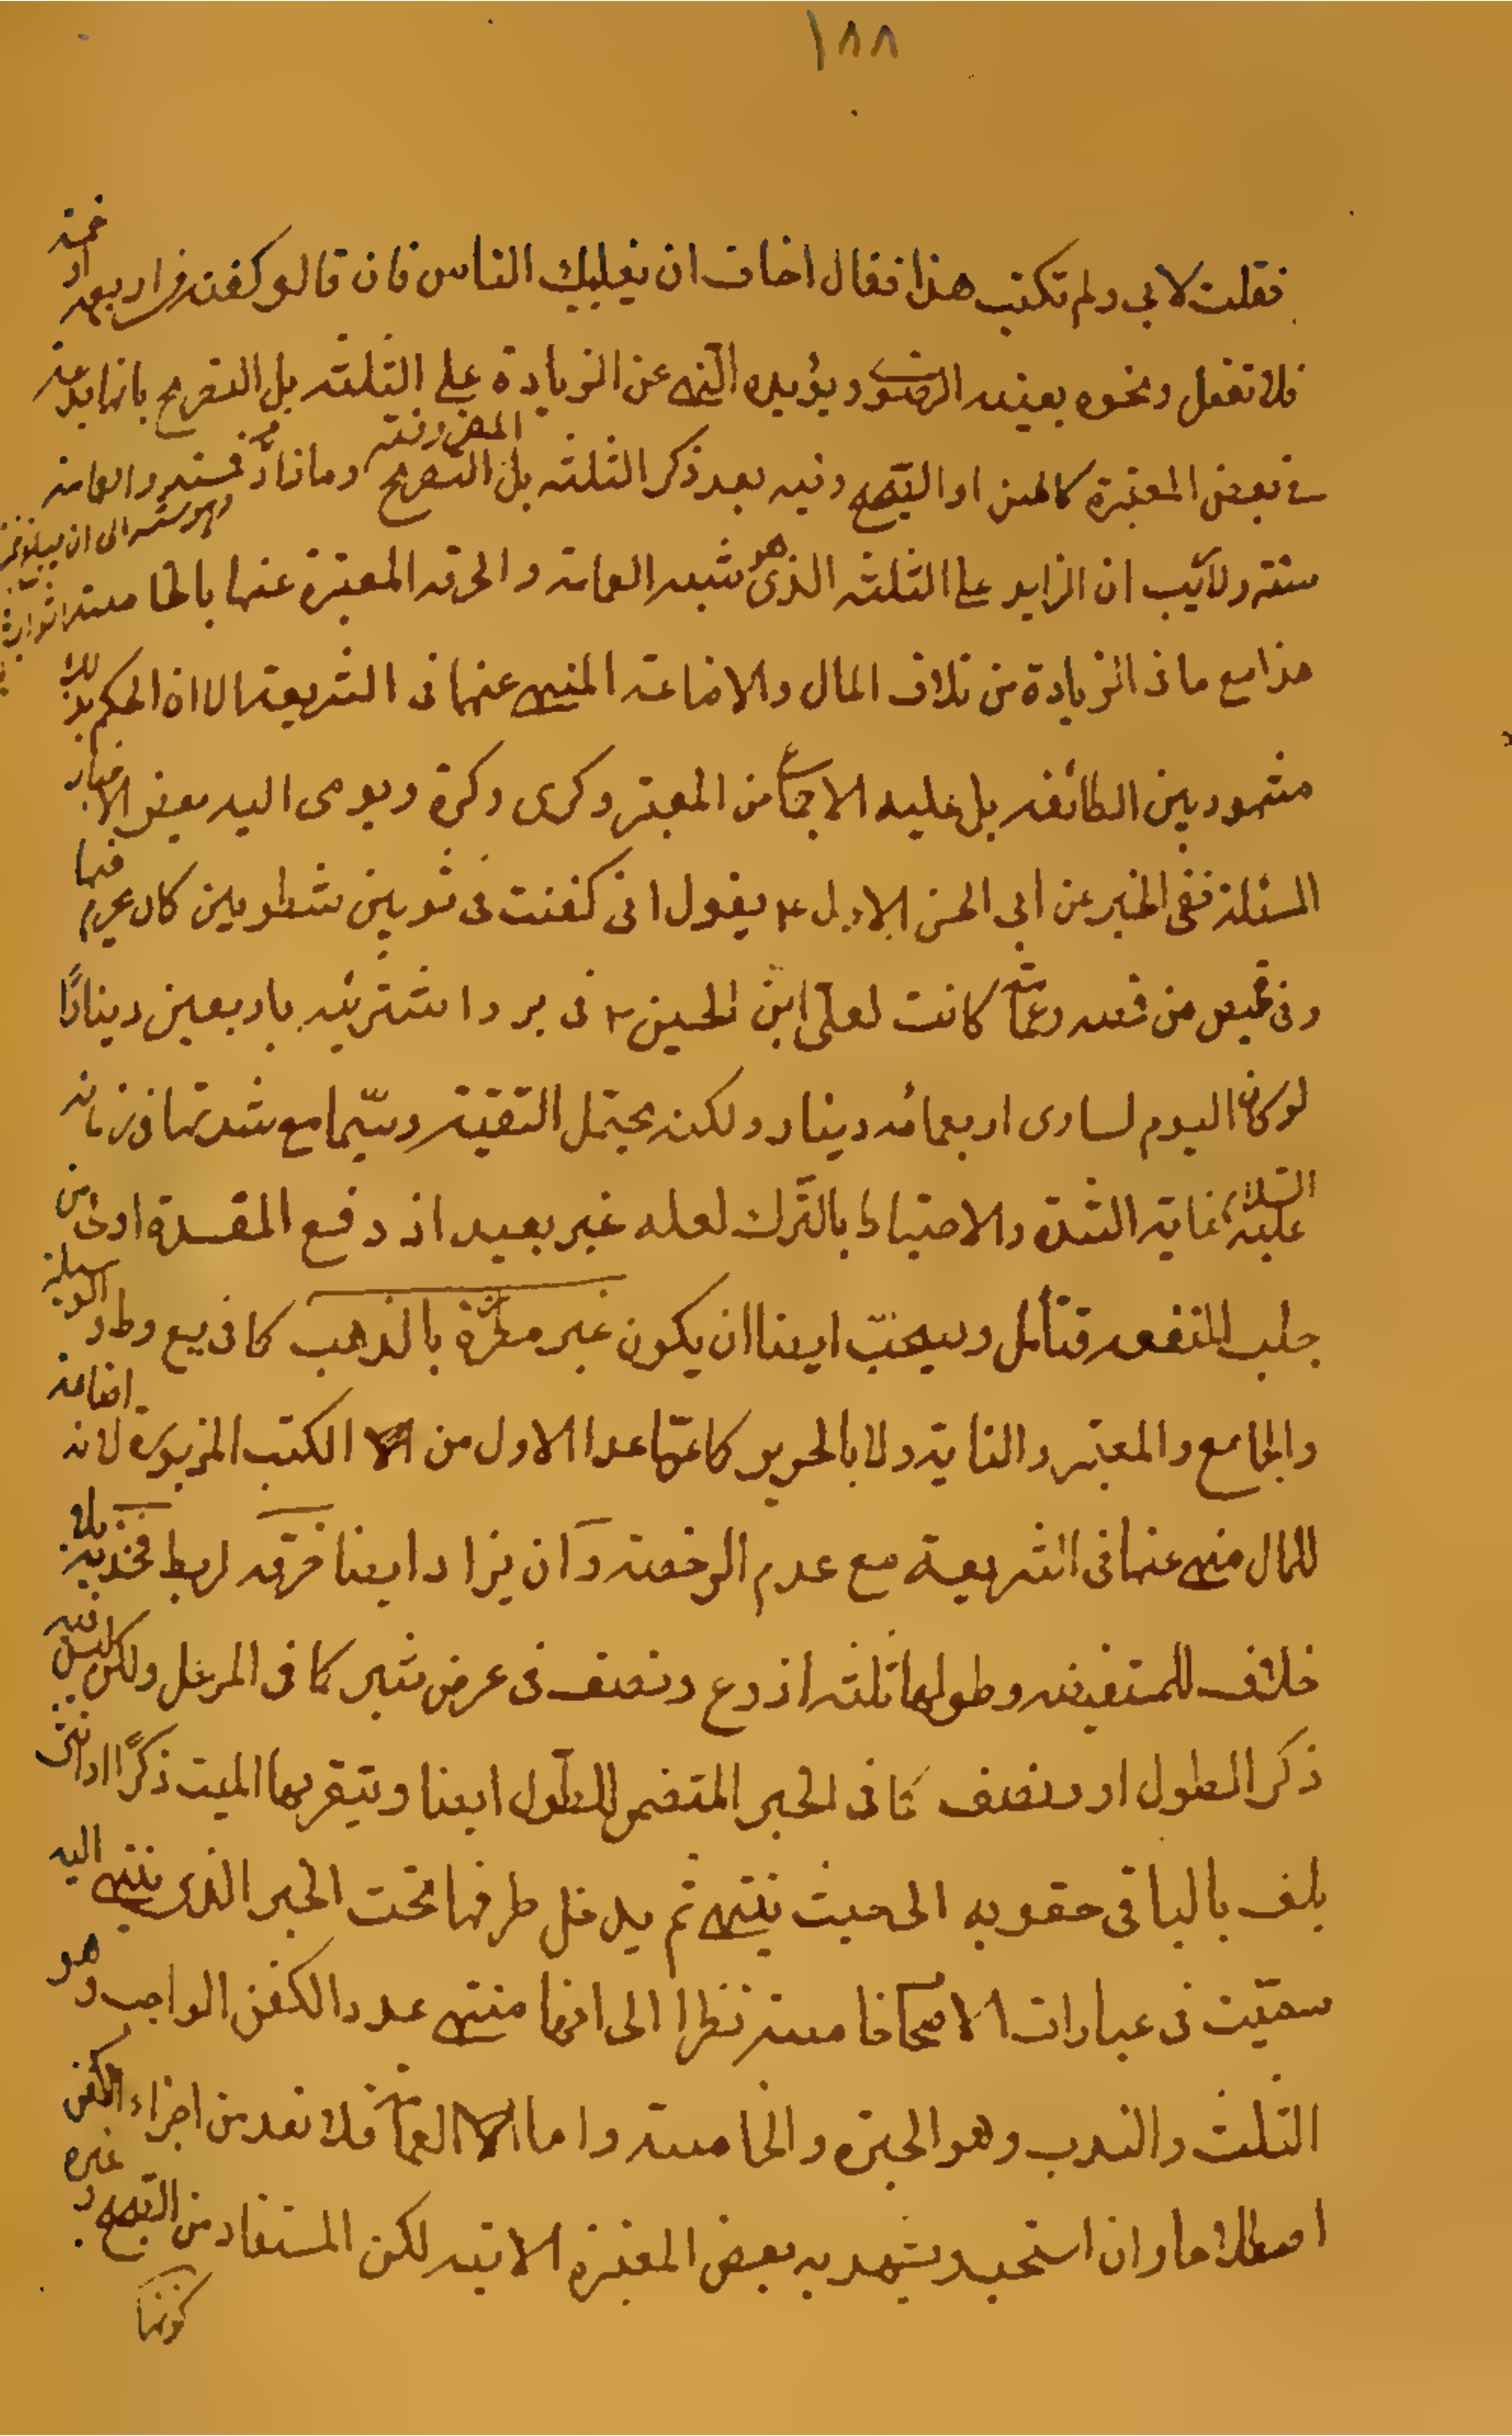 ١٨٨
فقلت لابي ولم تكتب هذا فقال اخاف ان يغلبك الناس فان قالو كفنه فى اربعة او خمسة
فلا تفعل ونحوه بعينه الرضوى ويؤيده النهى عن الزيادة على الثلثة بل التصريح بانها بدعة
فى بعض المعتبرة كالحسن او الصحيح وفيه بعد ذكر الثلثة بل التصريح المفروضة وما زاد فهو سنة والعمامة
وهو سنة الى ان يبلغ خمسة اثواب
سنة ولا ريب ان الزايد على الثلثة الذى هو شبه العمامة والخرقة المعتبرة عنها بالخامسة
هذا مع ما فى الزيادة من تلاف المال والاضاعة المنهى عنها فى الشريعة الا ان الحكم بذلك
مشهور بين الطائفة بل عليه الاجماع من المعتبر وكرى وكرة ويومى اليه بعض الاخبار
المسئلة ففى الخبر عن ابى الحسن الاول ع يقول انى كفنت فى ثوبين شطويين كان يحرم فيها
وفى قميص من قمصه وعمامة كانت لعلى ابن الحسين ع فى برد اشتريته باربعين دينارًا
لو كان اليوم لساوى اربعمائه دينار ولكنه يحتمل التقية وسيّما مع شدتها فى زمانه
عليه السلام غاية الشدة والاحتياط بالترك لعله غير بعيد اذ دفع المفسدة اولى من
جلب المنفعة فتأمل ويستحبّ ايضا ان يكون غير مطرّزة بالذهب كما فى يع وط والوسيلة
والجامع والمعتبر والنهاية ولا بالحرير كما عدا الاول من الكتب المزبورة لانه اضاعة
للمال منهى عنها فى الشريعة مع عدم الرخصة وان يزاد ايضا خرقة لربط فخذيه بلا
خلاف للمستفيضة وطولها ثلثة اذرع ونصف فى عرض شبر كما فى المرسل ولكن ليس فيه
ذكر الطول او ونصف كما فى الخبر المتضمن للطول ايضا ويثفر بها الميت ذكرًا او انثى
يلف بالباقى حقويه الى حيث ينتهى ثم يدخل طرفها تحت الخبر الذى ينتهى اليه
سمّيت فى عبارات الاصحاب خامسة نظرا الى انها منتهى عدد الكفن الواجب وهو
الثلث والندب وهو الحبرة والخامسة واما العمامة فلا تعد من اجزاء الكفن
اصطلاحا وان استحبت ويشهد به بعض المعتبرة الاتية لكن المستفاد من الصحيح وغيره
كونها